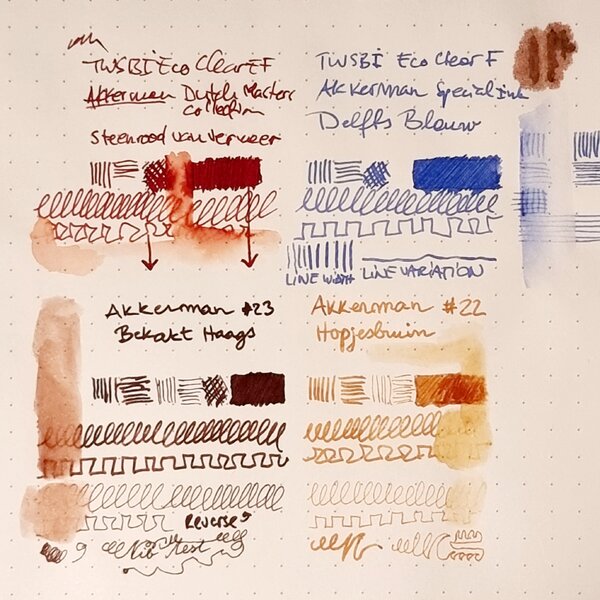 TWSBI Eco Clear EF
Akkerman Dutch Masters
Collection
Steenrood van Vermeer
TWSBI Eco Clear F
Akkerman Special Ink
Delfts Blauw
LINE WIDTH LINE VARIATION
Akkerman #23
Bekakt Haags
Reverse
Nib Test
Akkerman #22
Hopjesbruin